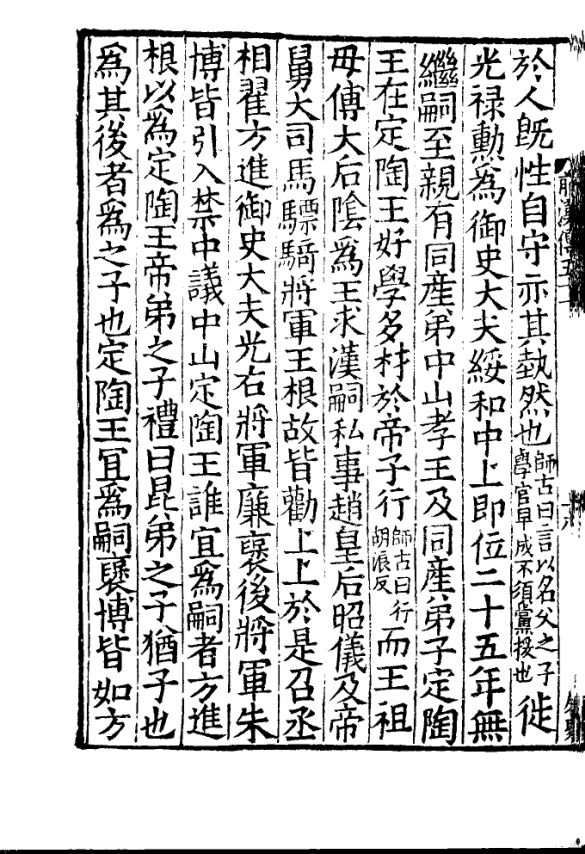 於人旣性自守亦其埶然也師古曰言以名父之子學官早成不須黨援也徙
光禄勲為御史大夫綏和中上即位二十五年無
繼嗣至親有同産弟中山孝王及同産弟子定陶
王在定陶王好學多材於帝子行師古曰行胡浪反而王祖
母傅大后隂爲王求漢嗣私事趙皇后昭儀及帝
舅大司馬驃騎將軍王根故皆勸上上於是召丞
相翟方進御史大夫光右將軍廉襃後將軍朱
博皆引入禁中議中山定陶王誰宜爲嗣者方進
根以為定陶王帝弟之子禮曰昆弟之子猶子也
爲其後者爲之子也定陶王宜爲嗣襃博皆如方